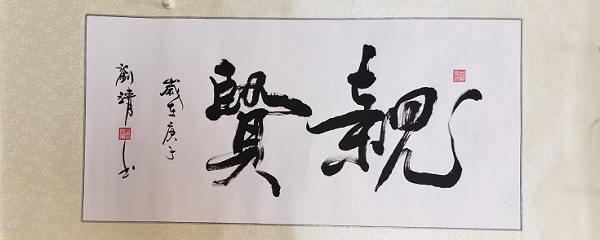 親賢
歲在庚子
劉靖书